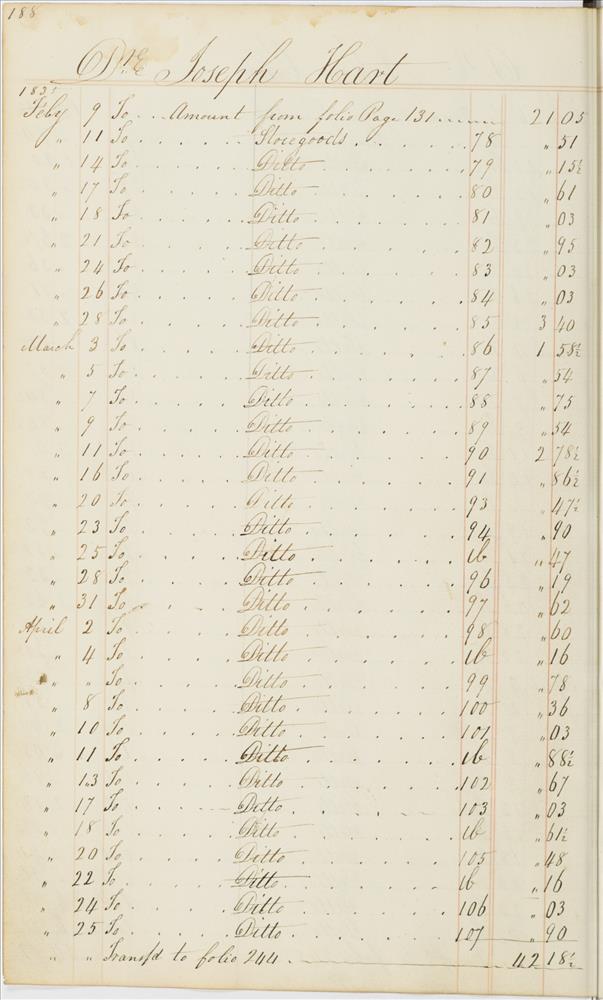 188
Dr Joseph Hart
1835
Feby 9 To . . Amount from folio Page 131 21 05
" 11 To . . . . . Storegoods . . . . . 78 " 51
" 14 To . . . . . Ditto . . . . . . . 79 " 15½
" 17 To . . . . . Ditto . . . . . . . 80 " 61
" 18 To . . . . . Ditto . . . . . . . 81 " 03
" 21 To . . . . . Ditto . . . . . . . 82 " 95
" 24 To . . . . . Ditto . . . . . . . 83 " 03
" 26 To . . . . . Ditto . . . . . . . 84 " 03
" 28 To . . . . . Ditto . . . . . . . 85 3 40
March 3 To . . . . . Ditto . . . . . . . 86 1 58½
" 5 To . . . . . Ditto . . . . . . . 87 " 54
" 7 To . . . . . Ditto . . . . . . . 88 " 75
" 9 To . . . . . Ditto . . . . . . . 89 " 54
" 11 To . . . . . Ditto . . . . . . . 90 2 78½
" 16 To . . . . . Ditto . . . . . . . 91 " 86½
" 20 To . . . . . Ditto . . . . . . . 93 " 47½
" 23 To . . . . . Ditto . . . . . . . 94 " 90
" 25 To . . . . . Ditto . . . . . . . ib " 47
" 28 To . . . . . Ditto . . . . . . . 96 " 19
" 31 To . . . . . Ditto . . . . . . . 97 " 62
April 2 To . . . . . Ditto . . . . . . . 98 " 60
" 4 To . . . . . Ditto . . . . . . . ib " 16
" " To . . . . . Ditto . . . . . . . 99 " 78
" 8 To . . . . . Ditto . . . . . . . 100 " 36
" 10 To . . . . . Ditto . . . . . . . 101 " 03
" 11 To . . . . . Ditto . . . . . . . ib " 88½
" 13 To . . . . . Ditto . . . . . . . 102 " 67
" 17 To . . . . . Ditto . . . . . . . 103 " 03
" 18 To . . . . . Ditto . . . . . . . ib " 61½
" 20 To . . . . . Ditto . . . . . . . 105 " 48
" 22 To . . . . . Ditto . . . . . . . ib " 16
" 24 To . . . . . Ditto . . . . . . . 106 " 03
" 25 To . . . . . Ditto . . . . . . . 107 " 90
" " Transfd to folio 244 42 18½